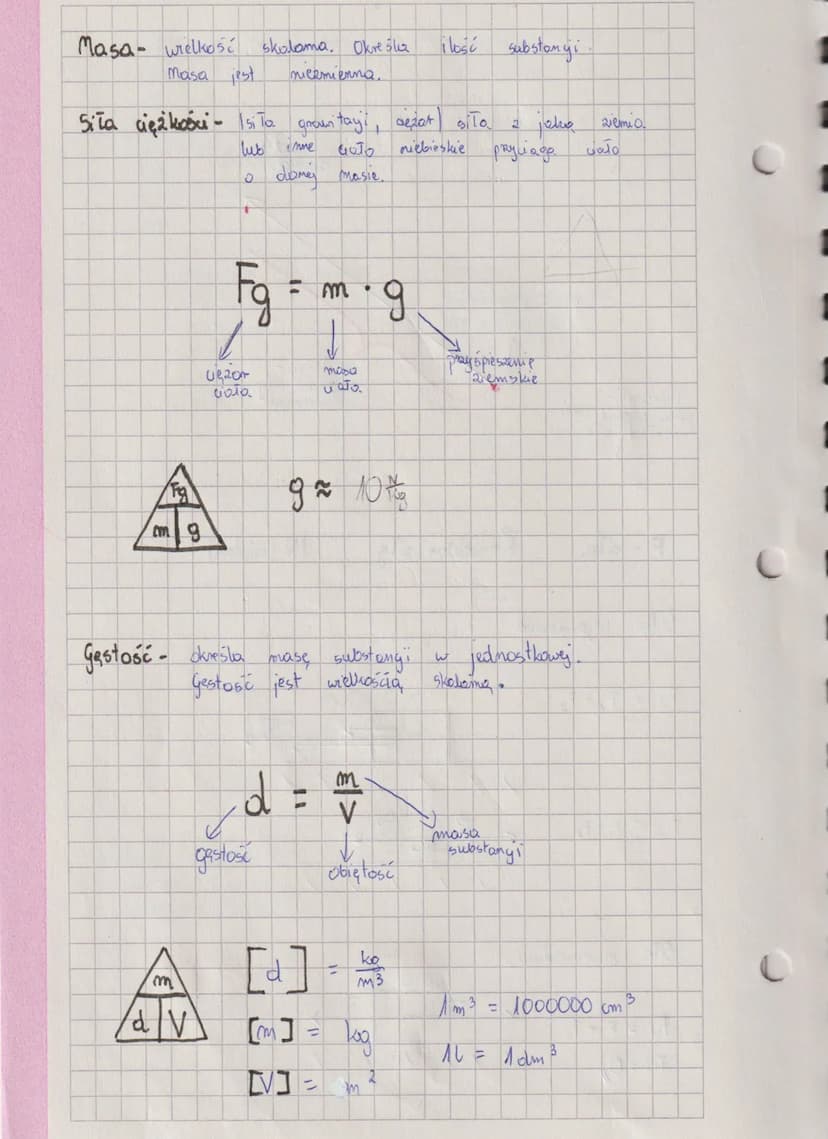 Masa - wielkość skalarna. Określa ilość substancji.
Masa jest niezmienna.
Siła ciężkości - (siła grawitacji, ciężar) siła z jaką ziemia
lub inne ciało niebieskie przyciąga ciało
o danej masie.
Fg = m · g
ciężar ciała
masa ciała
przyśpieszenie ziemskie
Fg
m g
g ≈ 10 N/kg
Gęstość - określa masę substancji w jednostkowej.
Gęstość jest wielkością skalarną.
d = m/V
gęstość
objętość
masa substancji
m
d V
[d] = kg/m³
[m] = kg
[V] = m²
1m³ = 1000000 cm³
1l = 1dm³